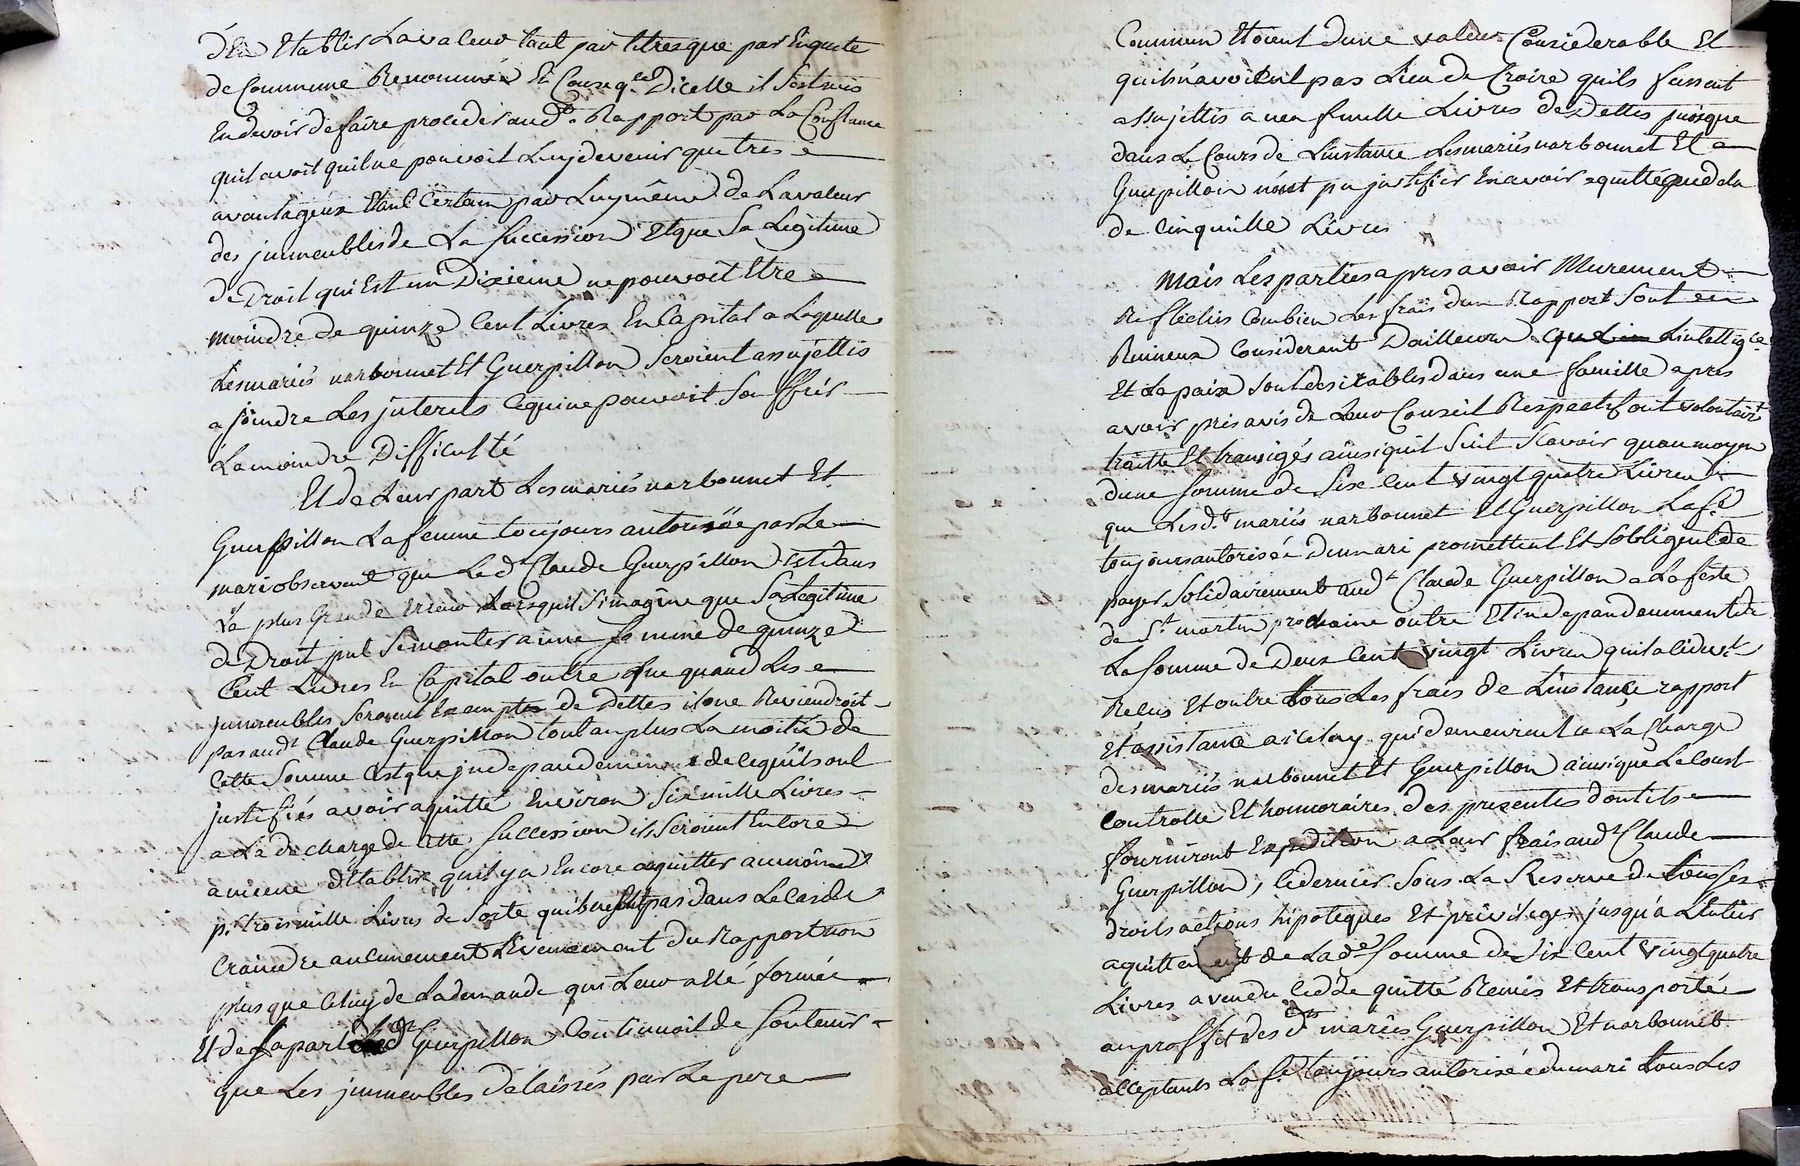 d'En Etablir La valeur tant par titres que par Enquete
de Commune Renommée En Conseq.ce Dicelle il s'est mis
En devoir de faire proceder aud.t Rapport par La Confiance
quil avoit quil ne pouvoit Luy devenir que tres
avantageux Etant Certain par Luy même de La valeur
des jmmeubles de La Succession Et que Sa Légitime
de Droit qui Est un Dixieme ne pouvoit Etre
moindre de quinze Cent Livres En Capital a Laquelle
Les mariés narbonnet Et Guerpillon Seroient assujettis
a joindre Les jnterets Ce qui ne pouvoit Souffrir
La moindre Difficulté
Et de Leur part Les mariés narbonnet Et
Guerpillon La femme toujours autorisée par Le
mari observent que Led.t Claude Guerpillon Est dans
La plus Grande Erreur Lorsquil S'imagine que Sa Légitime
de Droit put Se monter a une Somme de quinze
Cent Livres En Capital outre que quand Les
jmmeubles Seroient Exempts de Dettes il ne Reviendroit
pas aud.t Claude Guerpillon tout au plus La moitié de
Cette Somme C'est que jndepandemment de ce qu'ils ont
justifiés avoir aquitté Environ Six mille Livres
a La decharge de Cette Succession ils Seroient Encore
a meme d'Etablir quil y a Encore a aquitter au moins
p.r trois mille Livres de Sorte quils ne sont pas dans Le Cas de
Craindre aucunement L'Evenement du Rapport non
plus que Celuy de La demande qui Leur a Eté formée
Et de Sa part Led.t Guerpillon Continuoit de Soutenir
que Les jmmeubles délaissés par Le pere
Commun Etoient d'une valeur Considerable Et
quils n'avoient pas Lieu de Croire quils fussent
assujettis a neuf mille Livres de Dettes puisque
dans Le Cours de L'instance Les mariés narbonnet Et
Guerpillon n'ont pu justifier En avoir aquitté que de la
de Cinq mille Livres
Mais Les parties apres avoir Murement
Reflechis Combien Les frais d'un Rapport Sont
Ruineux Considerant D'ailleurs que Lintellig.ce
Et La paix Sont desirables dans une famille apres
avoir pris avis de Leur Conseil Respectif ont volontair.t
traitté Et transigés ainsi quil Suit Scavoir quau moyen
d'une Somme de Six Cent vingt quatre Livres
que Lesd.ts mariés narbonnet Et Guerpillon La f.e
toujours autorisée du mari promettent Et S'obligent de
payer Solidairement aud.t Claude Guerpillon a La feste
de S.t martin prochaine outre Et independamment de
La Somme de Deux Cent vingt Livres quil a Cidev.t
Recus Et outre tous Les frais de L'instance rapport
Et assistance a iceluy qui demeurent a La Charge
des mariés narbonnet Et Guerpillon ainsi que Le Coust
Controlle Et honnoraires des presentes dont ils
fourniront Expedition a Leur frais aud.t Claude
Guerpillon, Ce dernier Sous La Reserve de tous Ses
droits actions hipoteques Et privileges jusqu'a L'Entier
aquittement de La d.e Somme de Six Cent vingt quatre
Livres a vendu Cedde quitté Remis Et transporté
au proffit des d.ts mariés Guerpillon Et narbonnet
acceptants La f.e toujours autorisée du mari tous Les